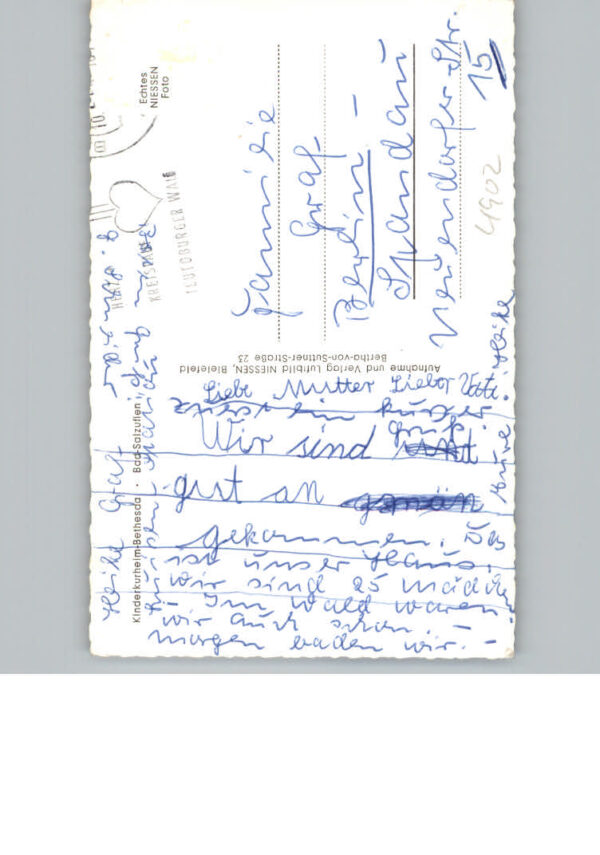 Liebe Mutter Lieber Vati!
zuerst ein kurzer
Gruß.
Wir sind
gut an
gekommen. Das
ist unser Haus.
Wir sind 25 Mädch
- Im Wald waren
wir auch schon. -
morgen baden wir. -
Eure Heike
Heike Graf
Kinderkurheim-Bethesda · Bad-Salzuflen
Aufnahme und Verlag Luftbild NIESSEN, Bielefeld
Bertha-von-Suttner-Straße 23
Echtes
NIESSEN
Foto
KREISSTADT
TEUTOBURGER WALD
Familie
Graf
Berlin -
Spandau
Neuendorfer-Str.
15
4902